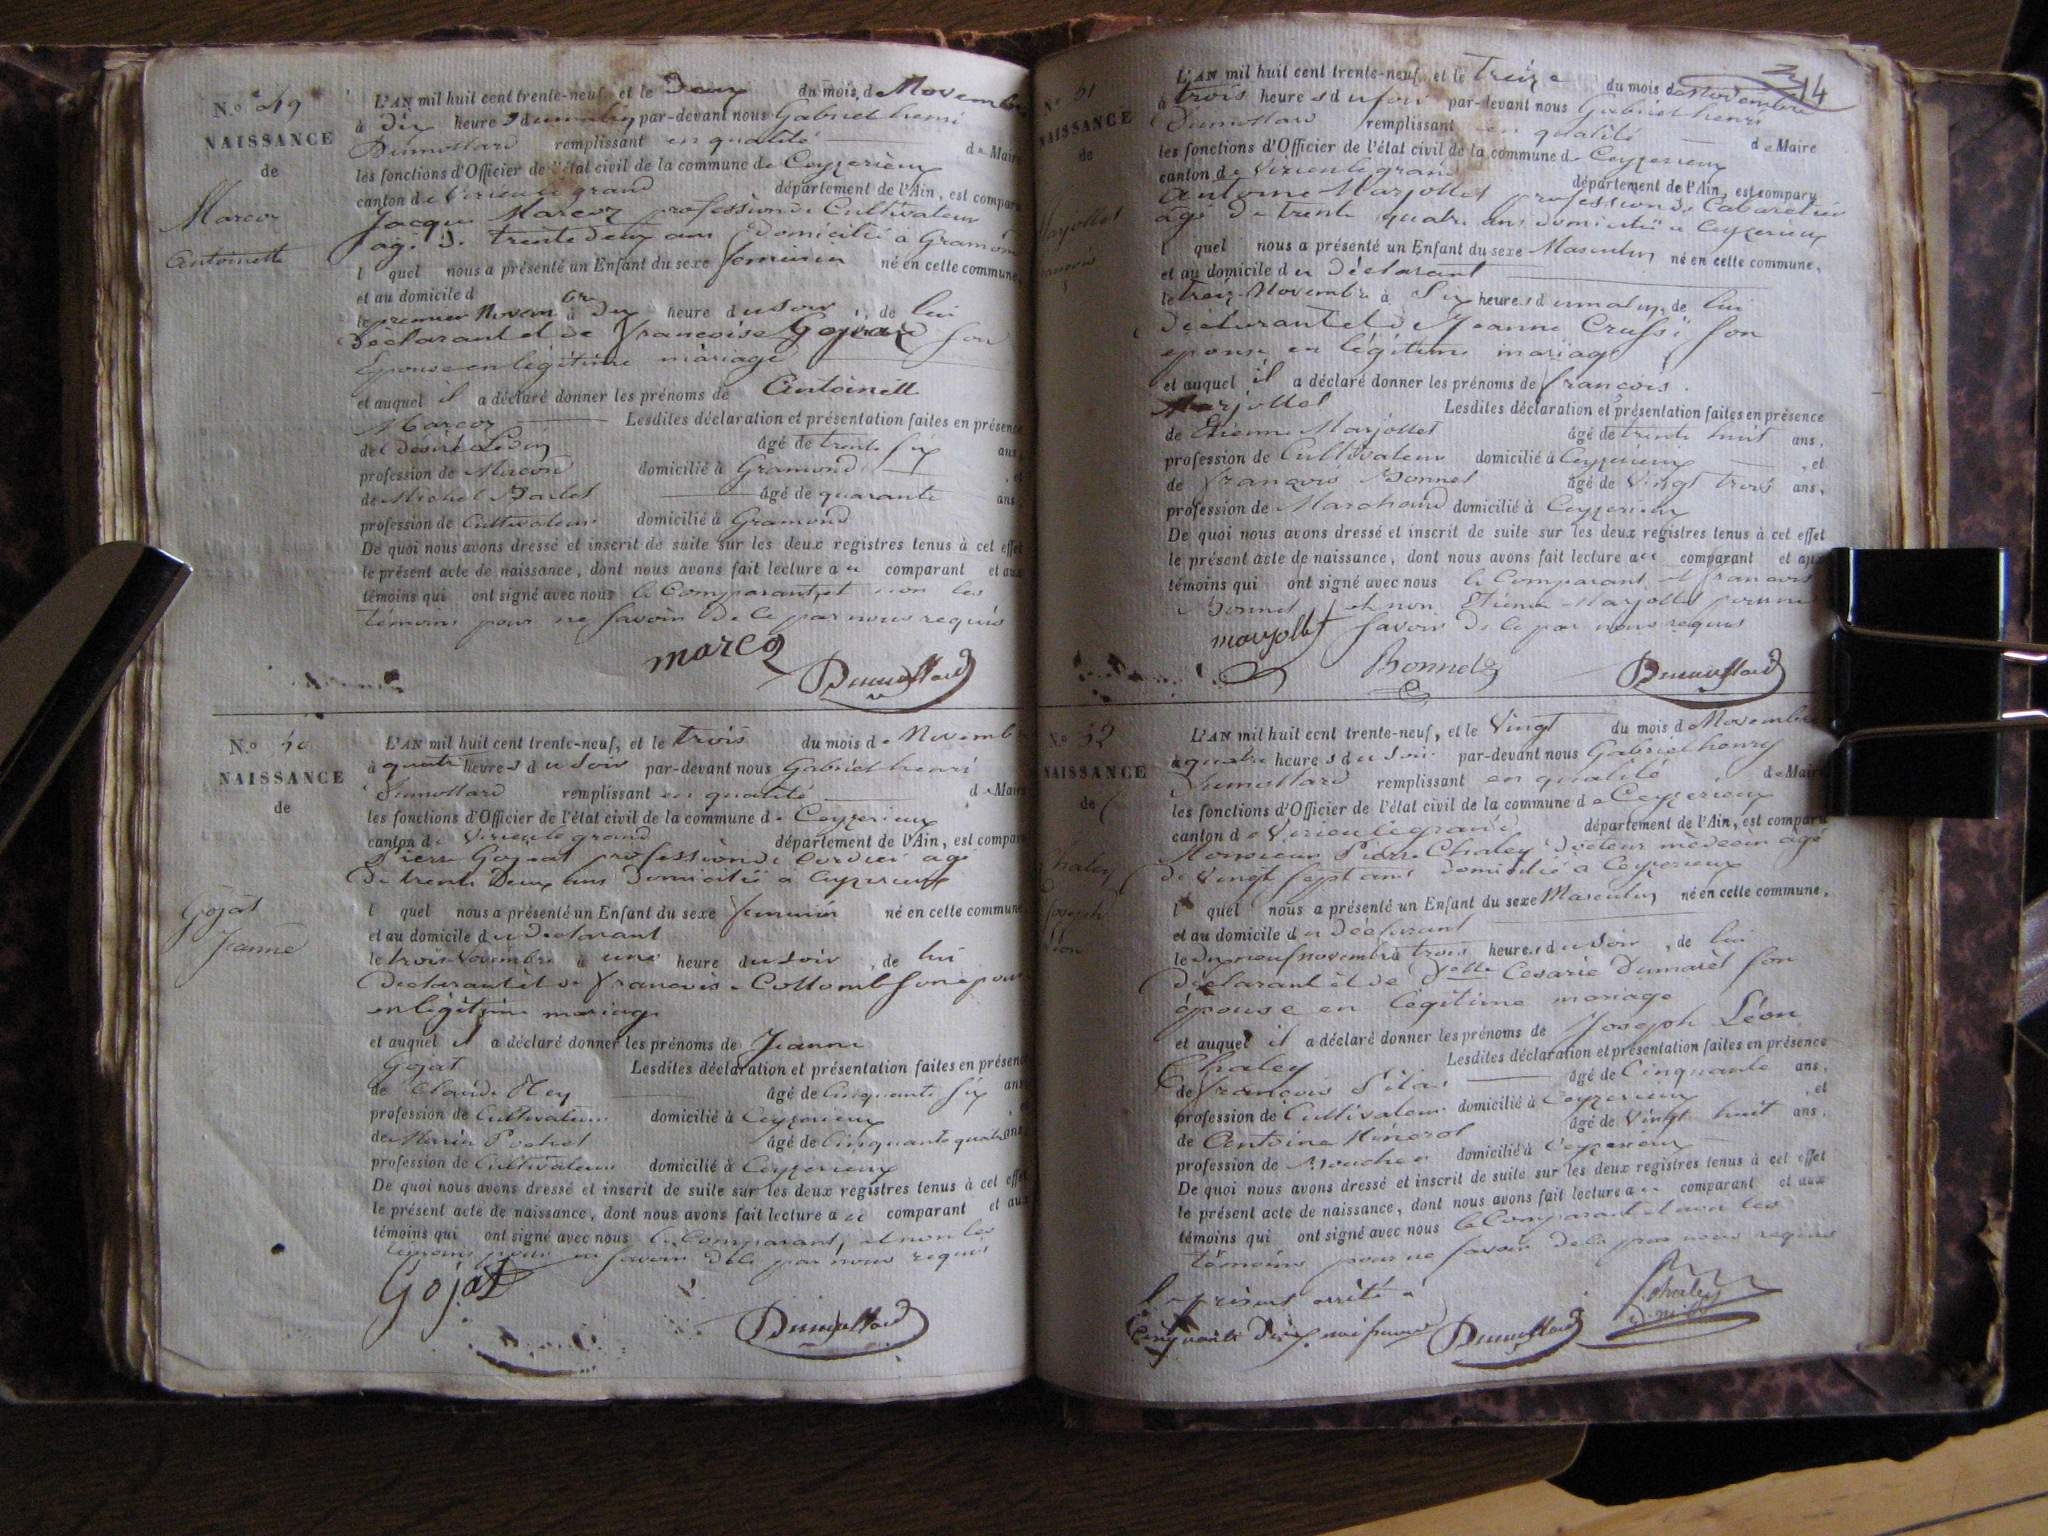 N.º 49
NAISSANCE
de
Marcoz
Antoinette
L'AN mil huit cent trente-neuf, et le Deux du mois de Novembre
à Dix heures du matin par-devant nous Gabriel henri
Dumollard remplissant en qualité de Maire
les fonctions d'Officier de l'état civil de la commune de Ceyzerieux
canton de Virieu le grand département de l'Ain, est comparu
Jacque Marcoz profession de Cultivateur
agé de trente deux ans domicilié à Gramond
l quel nous a présenté un Enfant du sexe feminin né en cette commune,
et au domicile d
le premier Novembre à Dix heure du soir, de lui
déclarant et de Françoise Gojoz son
Epouse en légitime mariage
et auquel il a déclaré donner les prénoms de Antoinette
Marcoz Lesdites déclaration et présentation faites en présence
de Désiré âgé de trente six ans,
profession de Macon domicilié à Gramond, et
de Michel Barlet âgé de quarante ans,
profession de Cultivateur domicilié à Gramond
De quoi nous avons dressé et inscrit de suite sur les deux registres tenus à cet effet
le présent acte de naissance, dont nous avons fait lecture au comparant et aux
témoins qui ont signé avec nous le Comparant, et non les
témoins pour ne savoir de ce par nous requis
marcoz
Dumollard
N.º 50
NAISSANCE
de
Gojat
Jeanne
L'AN mil huit cent trente-neuf, et le trois du mois de Novembre
à quatre heures du soir par-devant nous Gabriel henri
Dumollard remplissant en qualité de Maire
les fonctions d'Officier de l'état civil de la commune de Ceyzerieux
canton de Virieu le grand département de l'Ain, est comparu
Pierre Gojat profession de Cordier agé
de trente Deux ans domicilié a Ceyzerieux
l quel nous a présenté un Enfant du sexe feminin né en cette commune,
et au domicile du déclarant
le trois Novembre à une heure du soir, de lui
Déclarant et de Françoise Collomb son épouse
en légitime mariage
et auquel il a déclaré donner les prénoms de Jeanne
Gojat Lesdites déclaration et présentation faites en présence
de Claude Rey âgé de Cinquante six ans
profession de Cultivateur domicilié à Ceyzerieux
de Marin Pochet âgé de Cinquante quatre ans,
profession de Cultivateur domicilié à Ceyzerieux
De quoi nous avons dressé et inscrit de suite sur les deux registres tenus à cet effet
le présent acte de naissance, dont nous avons fait lecture au comparant et aux
témoins qui ont signé avec nous le Comparant, et non les
témoins pour ne savoir de ce par nous requis
Gojat
Dumollard
14
N.º 51
NAISSANCE
de
Marjollet
francois
L'AN mil huit cent trente-neuf, et le treize du mois de Novembre
à trois heures du soir par-devant nous Gabriel henri
Dumollard remplissant en qualité de Maire
les fonctions d'Officier de l'état civil de la commune de Ceyzerieux
canton de Virieu le grand département de l'Ain, est comparu
Antoine Marjollet profession de Cabaretier
agé de trente quatre ans domicilié a Ceyzerieux
l quel nous a présenté un Enfant du sexe Masculin né en cette commune,
et au domicile du déclarant
le treize Novembre à Six heures du matin, de lui
Déclarant et de Jeanne Crussi son
epouse en légitime mariage
et auquel il a déclaré donner les prénoms de françois.
Marjollet Lesdites déclaration et présentation faites en présence
de Etienne Marjollet âgé de trente huit ans,
profession de Cultivateur domicilié à Ceyzerieux, et
de François Bonnet âgé de Vingt trois ans,
profession de Marchand domicilié à Ceyzerieux
De quoi nous avons dressé et inscrit de suite sur les deux registres tenus à cet effet
le présent acte de naissance, dont nous avons fait lecture au comparant et aux
témoins qui ont signé avec nous le Comparant, et francois
Bonnet, et non Etienne Marjollet pour ne
savoir de ce par nous requis
marjollet
Bonnet
Dumollard
N.º 52
NAISSANCE
de
Chaley
Joseph
Léon
L'AN mil huit cent trente-neuf, et le Vingt du mois de Novembre
à quatre heures du soir par-devant nous Gabriel henry
Dumollard remplissant en qualité de Maire
les fonctions d'Officier de l'état civil de la commune de Ceyzerieux
canton de Virieu le grand département de l'Ain, est comparu
Monsieur Pierre Chaley docteur médecin âgé
de Vingt sept ans domicilié à Ceyzerieux
l quel nous a présenté un Enfant du sexe Masculin né en cette commune,
et au domicile du déclarant
le dix neuf novembre à trois heures du soir, de lui
Déclarant et de Césarie Dumarêt son
épouse en légitime mariage
et auquel il a déclaré donner les prénoms de Joseph Léon
Chaley Lesdites déclaration et présentation faites en présence
de françois Pilas âgé de Cinquante ans,
profession de Cultivateur domicilié à Ceyzerieux, et
de Antoine âgé de Vingt huit ans,
profession de domicilié à Ceyzerieux
De quoi nous avons dressé et inscrit de suite sur les deux registres tenus à cet effet
le présent acte de naissance, dont nous avons fait lecture au comparant et aux
témoins qui ont signé avec nous le Comparant et non les
témoins pour ne savoir de ce par nous requis
Le présent arrêté a
Cinquante Deux naissances
Dumollard
Chaley